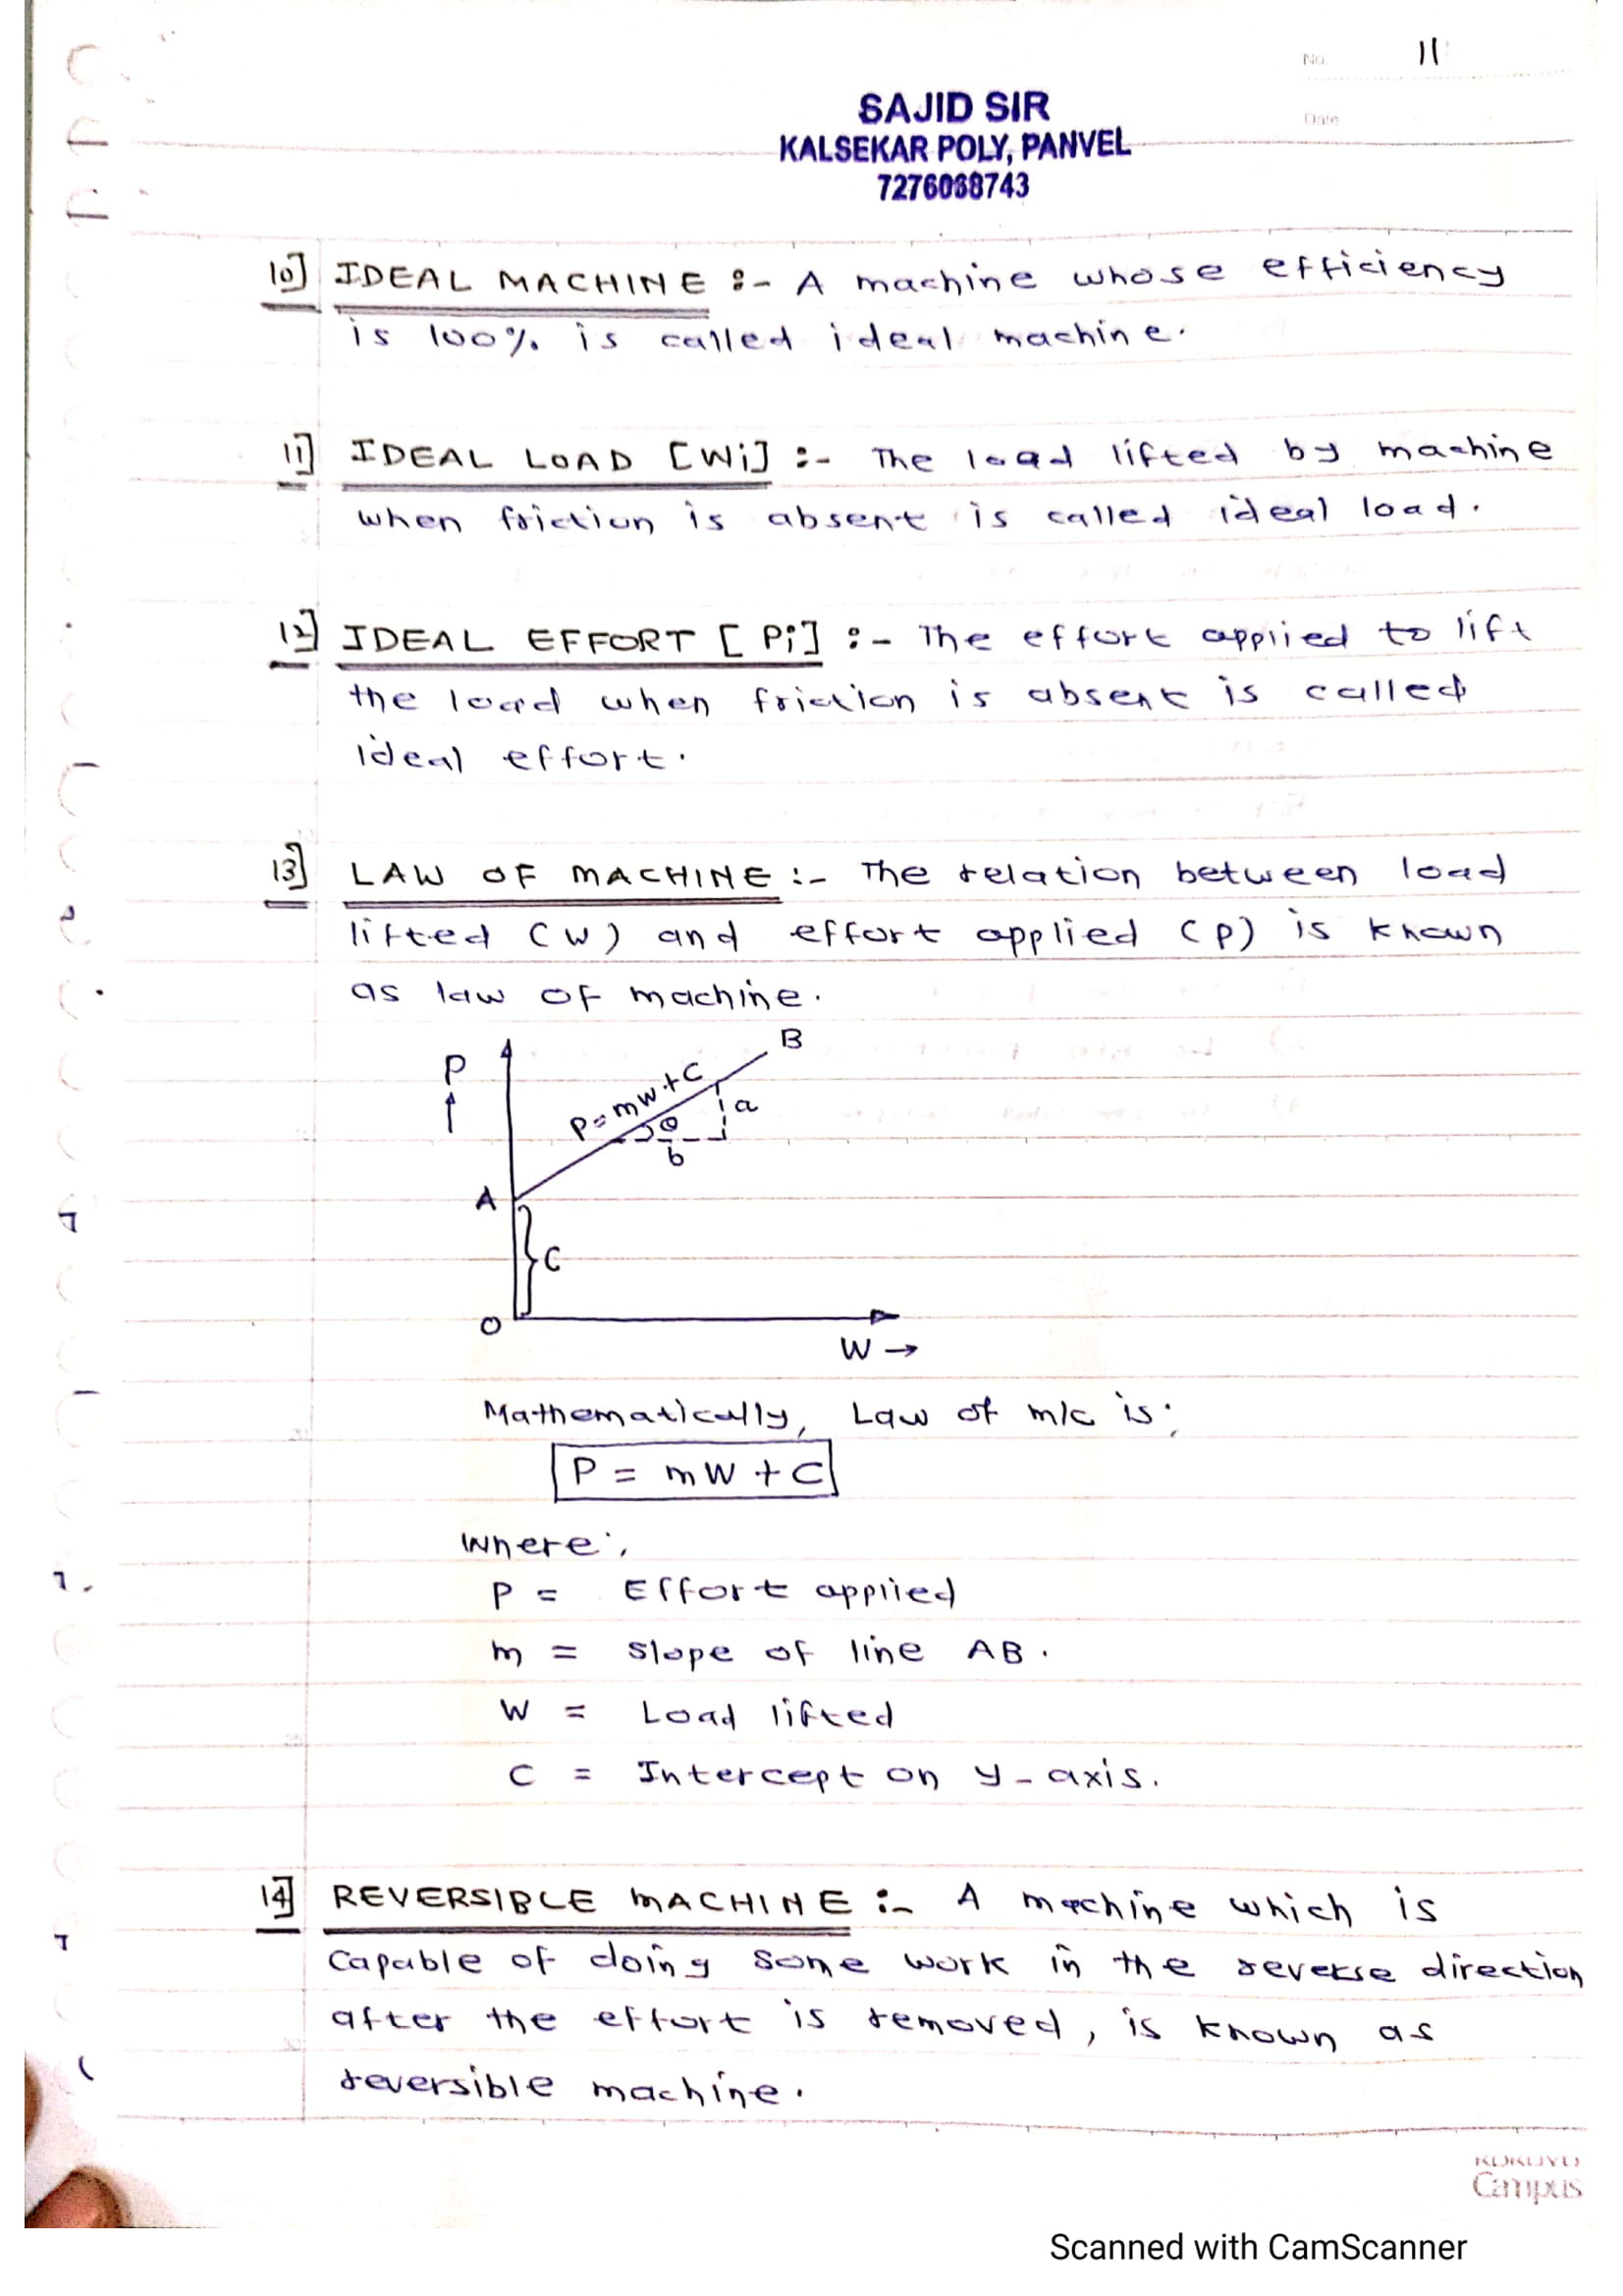 No. 11
SAJID SIR
Date
KALSEKAR POLY, PANVEL
7276038743
10] IDEAL MACHINE :- A machine whose efficiency
is 100% is called ideal machine.
11] IDEAL LOAD [Wi] :- The load lifted by machine
when friction is absent is called ideal load.
12] IDEAL EFFORT [Pi] :- The effort applied to lift
the load when friction is absent is called
ideal effort.
13] LAW OF MACHINE :- The relation between load
lifted (W) and effort applied (P) is known
as law of machine.
B
P
↑
P=mW+C
a
θ
b
A
C
O
W →
Mathematically, Law of m/c is;
P = mW + C
Where;
P = Effort applied
m = Slope of line AB.
W = Load lifted
C = Intercept on y-axis.
14] REVERSIBLE MACHINE :- A machine which is
capable of doing some work in the reverse direction
after the effort is removed, is known as
reversible machine.
KOKUYO
Campus
Scanned with CamScanner